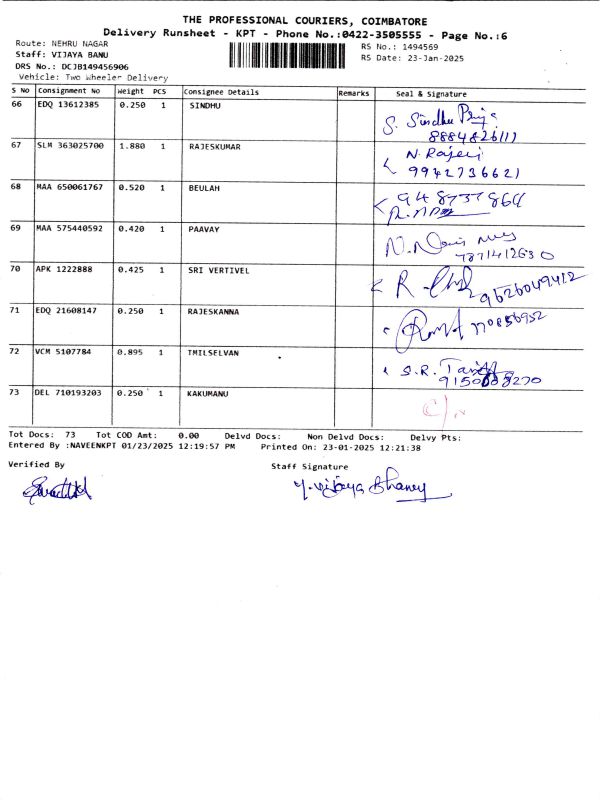 THE PROFESSIONAL COURIERS, COIMBATORE
Delivery Runsheet - KPT - Phone No.:0422-3505555 - Page No.:6
Route: NEHRU NAGAR
RS No.: 1494569
Staff: VIJAYA BANU
RS Date: 23-Jan-2025
DRS No.: DCJB149456906
Vehicle: Two Wheeler Delivery
S No Consignment No Weight PCS Consignee Details Remarks Seal & Signature
66 EDQ 13612385 0.250 1 SINDHU
S. Sindhu Priya
8884826111
67 SLM 363025700 1.880 1 RAJESKUMAR
N. Rajeri
9942736621
68 MAA 650061767 0.520 1 BEULAH
9487378 864
69 MAA 575440592 0.420 1 PAAVAY
7871412630
70 APK 1222888 0.425 1 SRI VERTIVEL
9626049412
71 EDQ 21608147 0.250 1 RAJESKANNA
72 VCM 5107784 0.895 1 TMILSELVAN
S.R.
73 DEL 710193203 0.250 1 KAKUMANU
C/N
Tot Docs: 73 Tot COD Amt: 0.00 Delvd Docs: Non Delvd Docs: Delvy Pts:
Entered By :NAVEENKPT 01/23/2025 12:19:57 PM Printed On: 23-01-2025 12:21:38
Verified By
Staff Signature
Y. Vijaya Bhaney